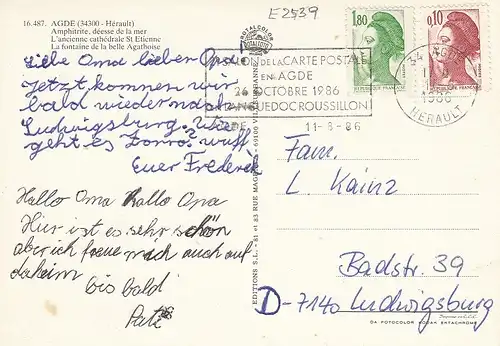 16.487. AGDE (34300 - Hérault)
Amphitrite, déesse de la mer
L'ancienne cathédrale St Etienne
La fontaine de la belle Agathoise
Liebe Oma lieber Opa
Jetzt kommen wir
bald wieder nach
Ludwigsburg. Wie
geht es Zorro? wuff
Euer Frederik
Hallo Oma Hallo Opa
Hier ist es sehr schön
aber ich freue mich auch auf
daheim
bis bald
EDITIONS S.L. - 81 et 83 RUE - 69100 VILLEURBANNE
E2539
1,80
FRANCE
0,10
FRANCE
DE LA CARTE POSTALE
EN AGDE
26 OCTOBRE 1986
LANGUEDOC ROUSSILLON
11-8-86
34 AGDE
1986
HERAULT
Fam.
L. Kainz
Badstr. 39
D-7140 Ludwigsburg
PHOTOCOLOR KODAK EKTACHROME